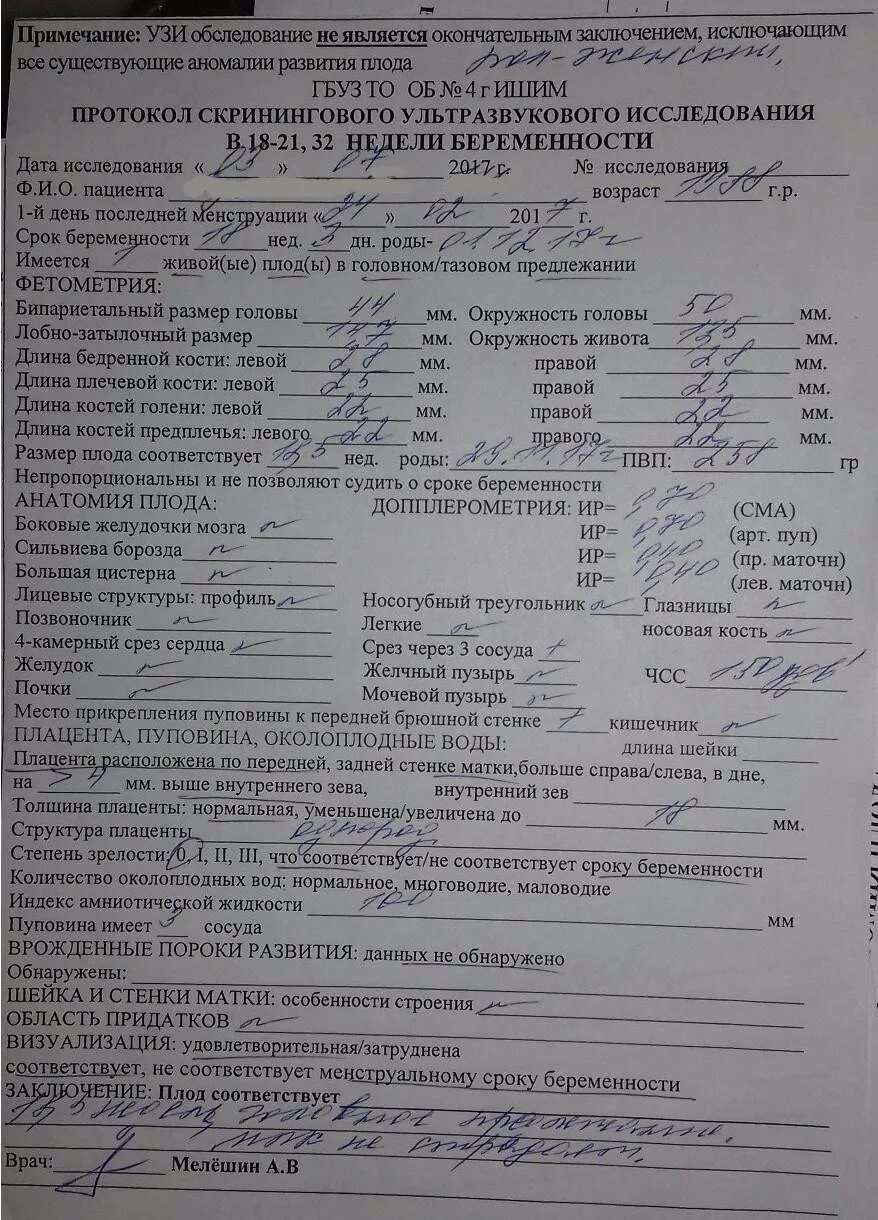 Примечание: УЗИ обследование не является окончательным заключением, исключающим
все существующие аномалии развития плода пол - женский,
ГБУЗ ТО ОБ № 4 г ИШИМ
ПРОТОКОЛ СКРИНИНГОВОГО УЛЬТРАЗВУКОВОГО ИССЛЕДОВАНИЯ
В 18-21, 32 НЕДЕЛИ БЕРЕМЕННОСТИ
Дата исследования « 03 » 07 2017 г. № исследования
Ф.И.О. пациента возраст 1988 г.р.
1-й день последней менструации « 24 » 02 2017 г.
Срок беременности 18 нед. 3 дн. роды- 01.12.17г
Имеется 1 живой(ые) плод(ы) в головном/тазовом предлежании
ФЕТОМЕТРИЯ:
Бипариетальный размер головы 44 мм. Окружность головы 50 мм.
Лобно-затылочный размер мм. Окружность живота 135 мм.
Длина бедренной кости: левой 28 мм. правой 28 мм.
Длина плечевой кости: левой 25 мм. правой 25 мм.
Длина костей голени: левой 22 мм. правой 22 мм.
Длина костей предплечья: левого 22 мм. правого 22 мм.
Размер плода соответствует нед. роды: 29.11.17г ПВП: 258 гр
Непропорциональны и не позволяют судить о сроке беременности
АНАТОМИЯ ПЛОДА: ДОППЛЕРОМЕТРИЯ: ИР= 0,70 (СМА)
Боковые желудочки мозга n ИР= 0,70 (арт. пуп)
Сильвиева борозда n ИР= 0,40 (пр. маточн)
Большая цистерна n ИР= 0,40 (лев. маточн)
Лицевые структуры: профиль n Носогубный треугольник n Глазницы n
Позвоночник n Легкие n носовая кость n
4-камерный срез сердца n Срез через 3 сосуда +
Желудок n Желчный пузырь n ЧСС 150 уд
Почки n Мочевой пузырь n
Место прикрепления пуповины к передней брюшной стенке + кишечник n
ПЛАЦЕНТА, ПУПОВИНА, ОКОЛОПЛОДНЫЕ ВОДЫ: длина шейки
Плацента расположена по передней, задней стенке матки,больше справа/слева, в дне,
на > 4 мм. выше внутреннего зева, внутренний зев
Толщина плаценты: нормальная, уменьшена/увеличена до 18 мм.
Структура плаценты однород
Степень зрелости: 0, I, II, III, что соответствует/не соответствует сроку беременности
Количество околоплодных вод: нормальное, многоводие, маловодие
Индекс амниотической жидкости 100 мм
Пуповина имеет 3 сосуда
ВРОЖДЕННЫЕ ПОРОКИ РАЗВИТИЯ: данных не обнаружено
Обнаружены:
ШЕЙКА И СТЕНКИ МАТКИ: особенности строения n
ОБЛАСТЬ ПРИДАТКОВ n
ВИЗУАЛИЗАЦИЯ: удовлетворительная/затруднена
соответствует, не соответствует менструальному сроку беременности
ЗАКЛЮЧЕНИЕ: Плод соответствует
недель головное предлежание.
мпк не страдает.
Врач: Мелёшин А.В